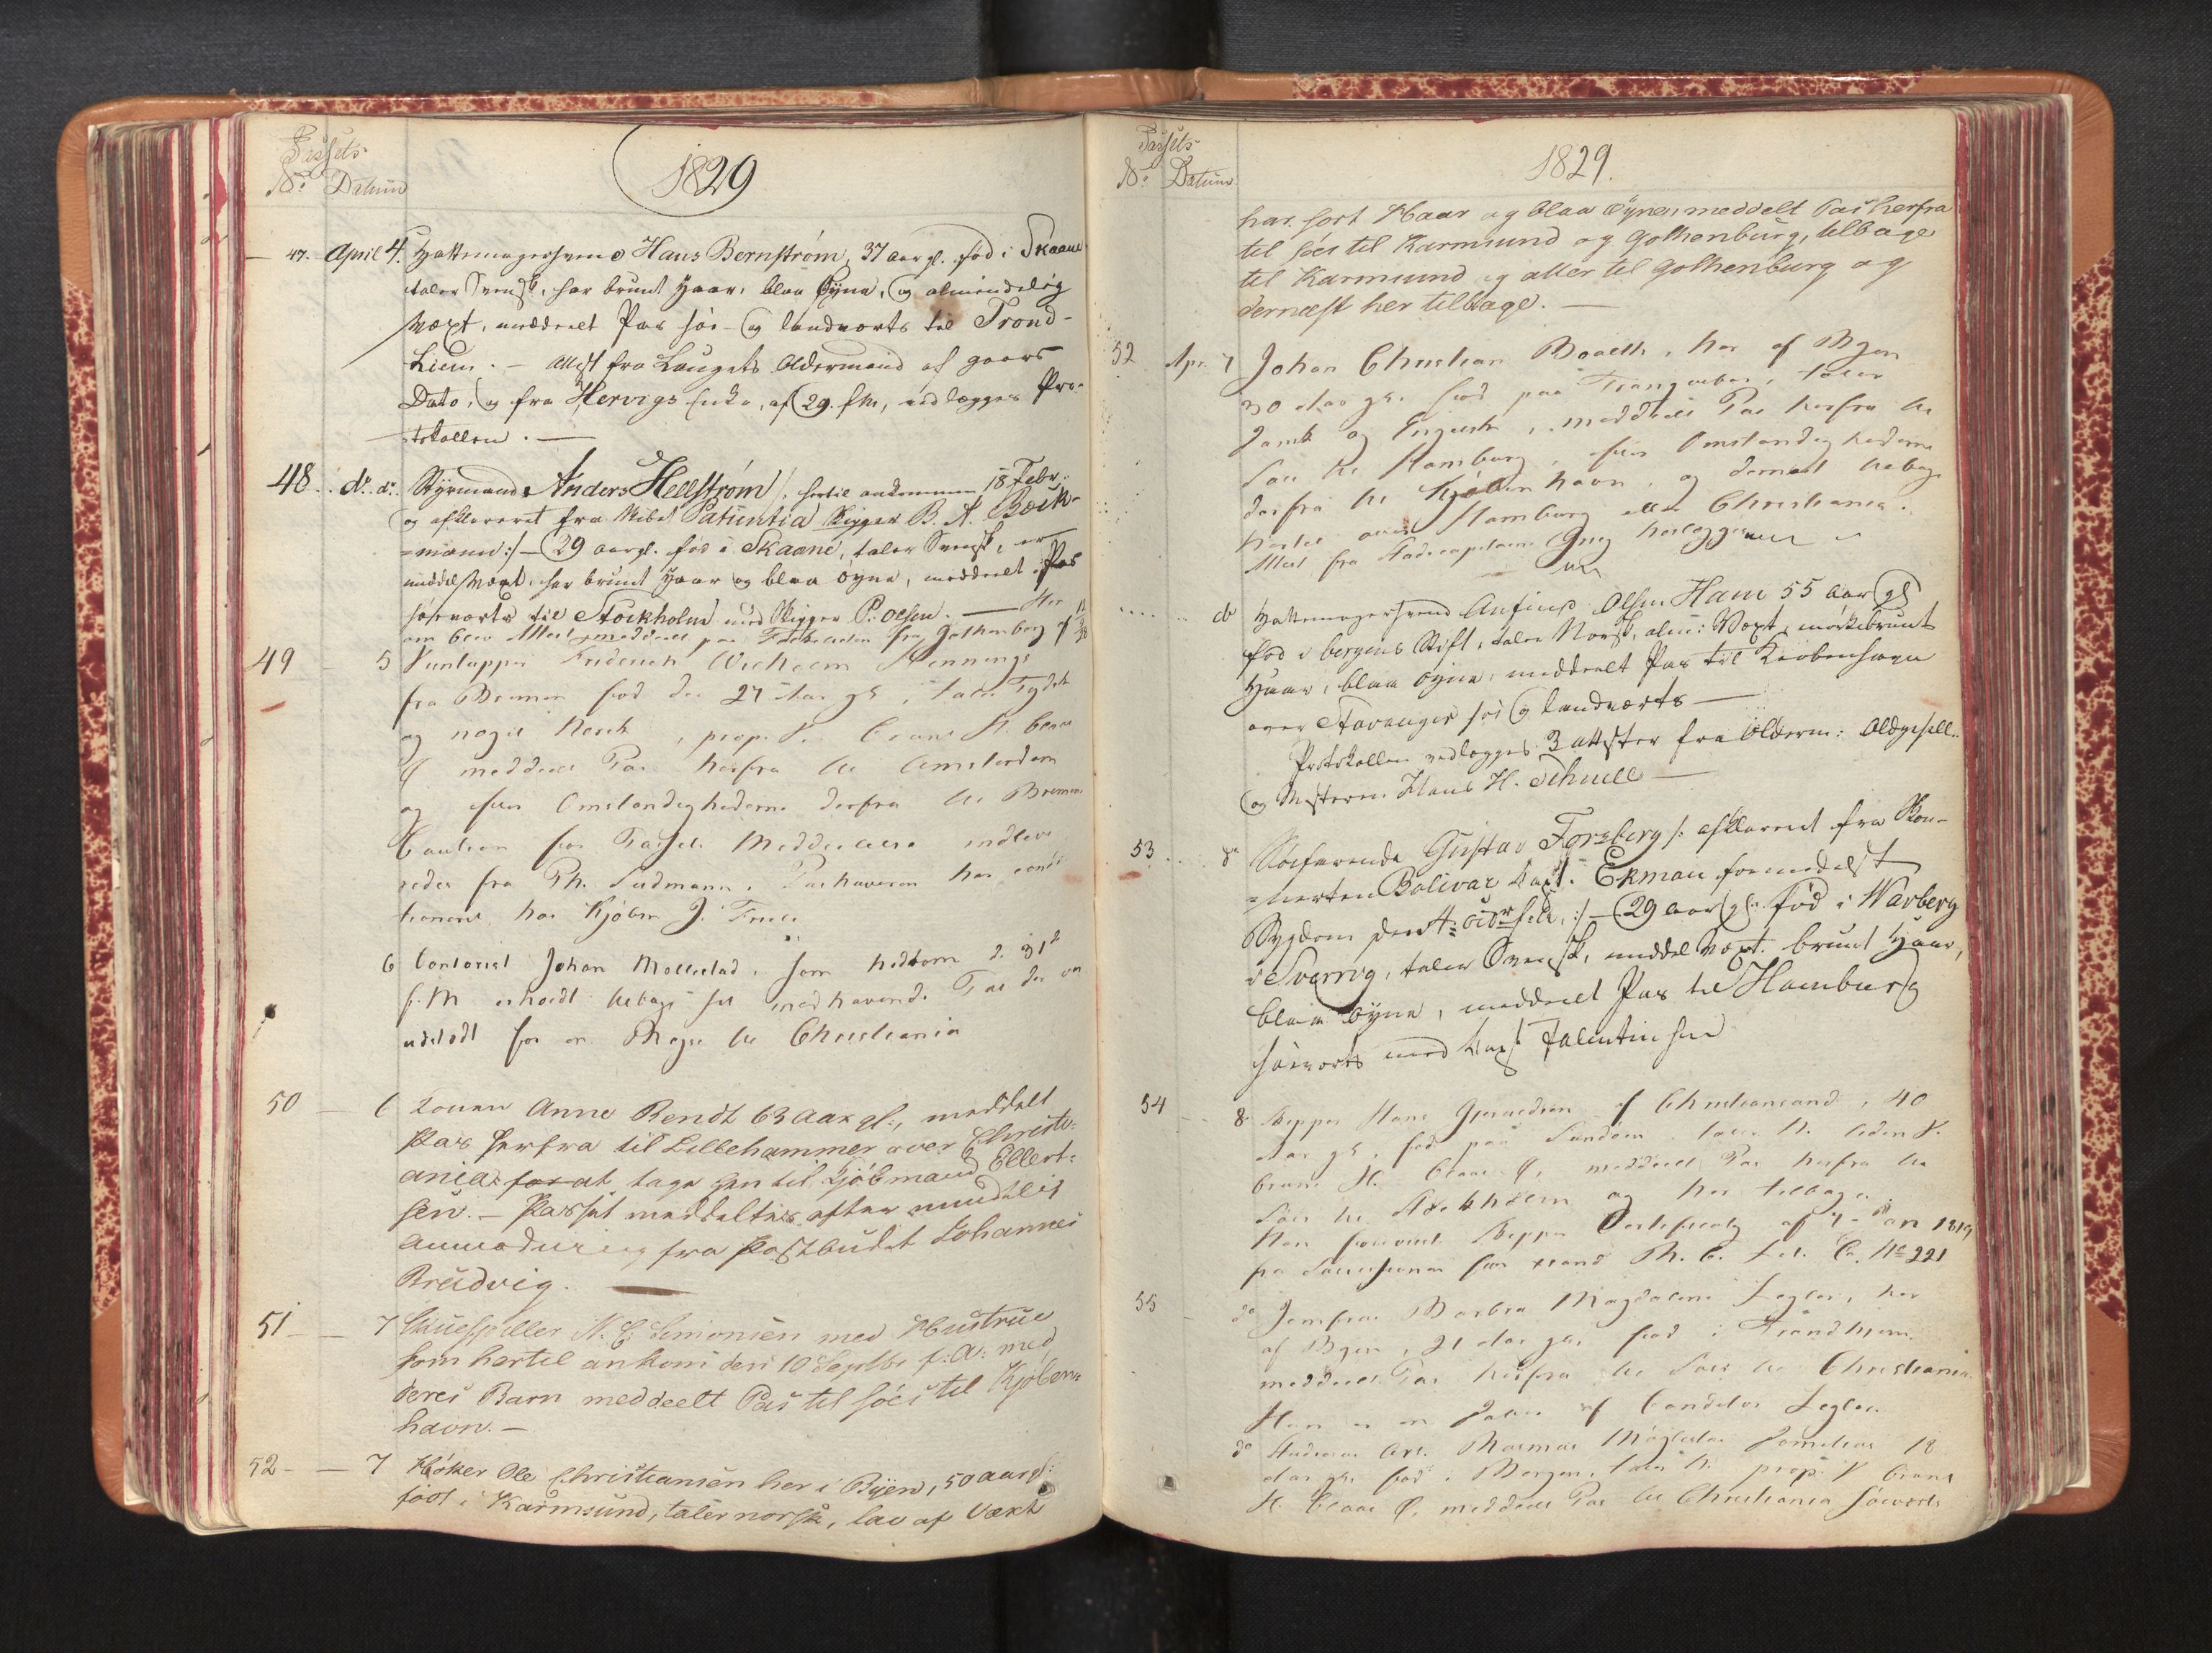 Passets
No Datum
1829
47. April 4. Hattemagersvend Hans Bernstrøm, 37 aar gl. fød i Skaane
taler Svensk, har bruunt Haar, blaa Øyne, og almindelig
Væxt, meddeelt Pas søe- og landværts til Trond-
hiem. — Attest fra Laugets Oldermand af gaars
Dato, og fra Hervigs Enke, af 29. f.M., vedlægges Pro-
tokollen. —
48. do. do. Styrmand Anders Hellstrøm /: hertil ankommen 18 Febr.
og afklareret fra Skibet Patientia Skipper B. A. Beck-
=mann :/ — 29 aar gl. fød i Skaane, taler Svensk, er
middel Væxt, har bruunt Haar og blaa Øyne, meddeelt Pas
søeværts til Stockholm med Skipper P. Olsen. —
om blev Attest meddeelt paa fra Gothenborg af
49 5 Friderich Wilhelm Hennings
fra Bremen fød der 27 Aar gl., taler Tydsk
og noget Norsk, prop. V. bruns H. blaae
Ø meddeelt Pas herfra til Amsterdam
og efter Omstændighederne derfra til Bremen
Caution for Passets Meddelelse indleve
redes fra Ph. Sudmann. Pashaveren har condi
tioneret hos Kjøbm J.
6 Contorist Johan Mollestad, som hidkom d. 31te
f. M erholdt tilbage sit medhavende Pas der var
udstædt for en Rejse til Christiania
50 — 6 Konen Anne Bendt 63 Aar gl., meddelt
Pas herfra til Lillehammer over Christi-
ania for at tage hen til Kjøbmand Ellert-
sen. — Passet meddeltes efter mundtlig
Anmodning fra Postbudet Johannes
Brudvig. —
51 — — 7 Skuespiller N. C. Simonsen med Hustrue
som hertil ankom den 10 Septbr f: A: med
deres Barn meddeelt Pas til søes til Kjøben-
havn. —
52 — — 7 Høker Ole Christiansen her i Byen, 50 aar gl:
født i Karmsund, taler norsk, lav af Væxt
Passets
No Datum
1829.
har sort Haar og blaa Øyne, meddelt Pas herfra
til søes til Karmsund og Gothenburg, tilbage
til Karmsund og atter til Gothenburg og
dernæst her tilbage. —
52 Apr. 7 Johan Christian Boalth, her af Byen
30 Aar gl. fød paa Tranquebar, taler
Dansk og Engelsk, meddeelt Pas herfra til
Søes til Hamburg, efter Omstændighederne
derfra til Kjøbenhavn, og dernæst tilbage
hertil over Hamburg eller Christiania.
Attest fra Stadscapitain Grieg henlægges
do Hattemagersvend Anfind Olsen Ham 55 Aar gl
fød i Bergens Stift, taler Norsk, alm: Væxt, mørkebruunt
Haar, blaa Øyne, meddeelt Pas til Kiøbenhavn
over Stavanger søe og landværts —
Protokollen vedlægges 3 Attester fra Olderm: Oldgesell:
og Mesteren Hans H. Schnell —
53 do Søefarende Gustav Forsberg /: afklareret fra Skon-
=nerten Bolivar Capt. Ekman formedelst
Sygdom :/ — 29 aar gl: fød i Warberg
i Sverrig, taler Svensk, middel Væxt, bruunt Haar,
blaa Øyne, meddeelt Pas til Hamburg
søeværts med Capt Falentinsen
54 8 Skipper Hans of Christiansand, 40
Aar gl. fød paa Sundøen taler N. liden V.
bruns H. blaae Ø, meddeelt Pas herfra til
Søes til Stokholm og her tilbage.
Han foreviiste Skipper Certificat af 7 Jan 1819
fra B. C. Lit. C. No 221
55 do Jomfrue Barbra Magdalene Legler, her
af Byen, 21 Aar gl. fød i Trondhjem
meddeelt Pas herfra til Søes til Christiania.
Hun er en Datter af Canditor Legler
do Student Rasmus 18
Aar gl. fød i Bergen, taler N. prop: V bruns
H. blaae Ø. meddeelt Pas til Christiania søeværts